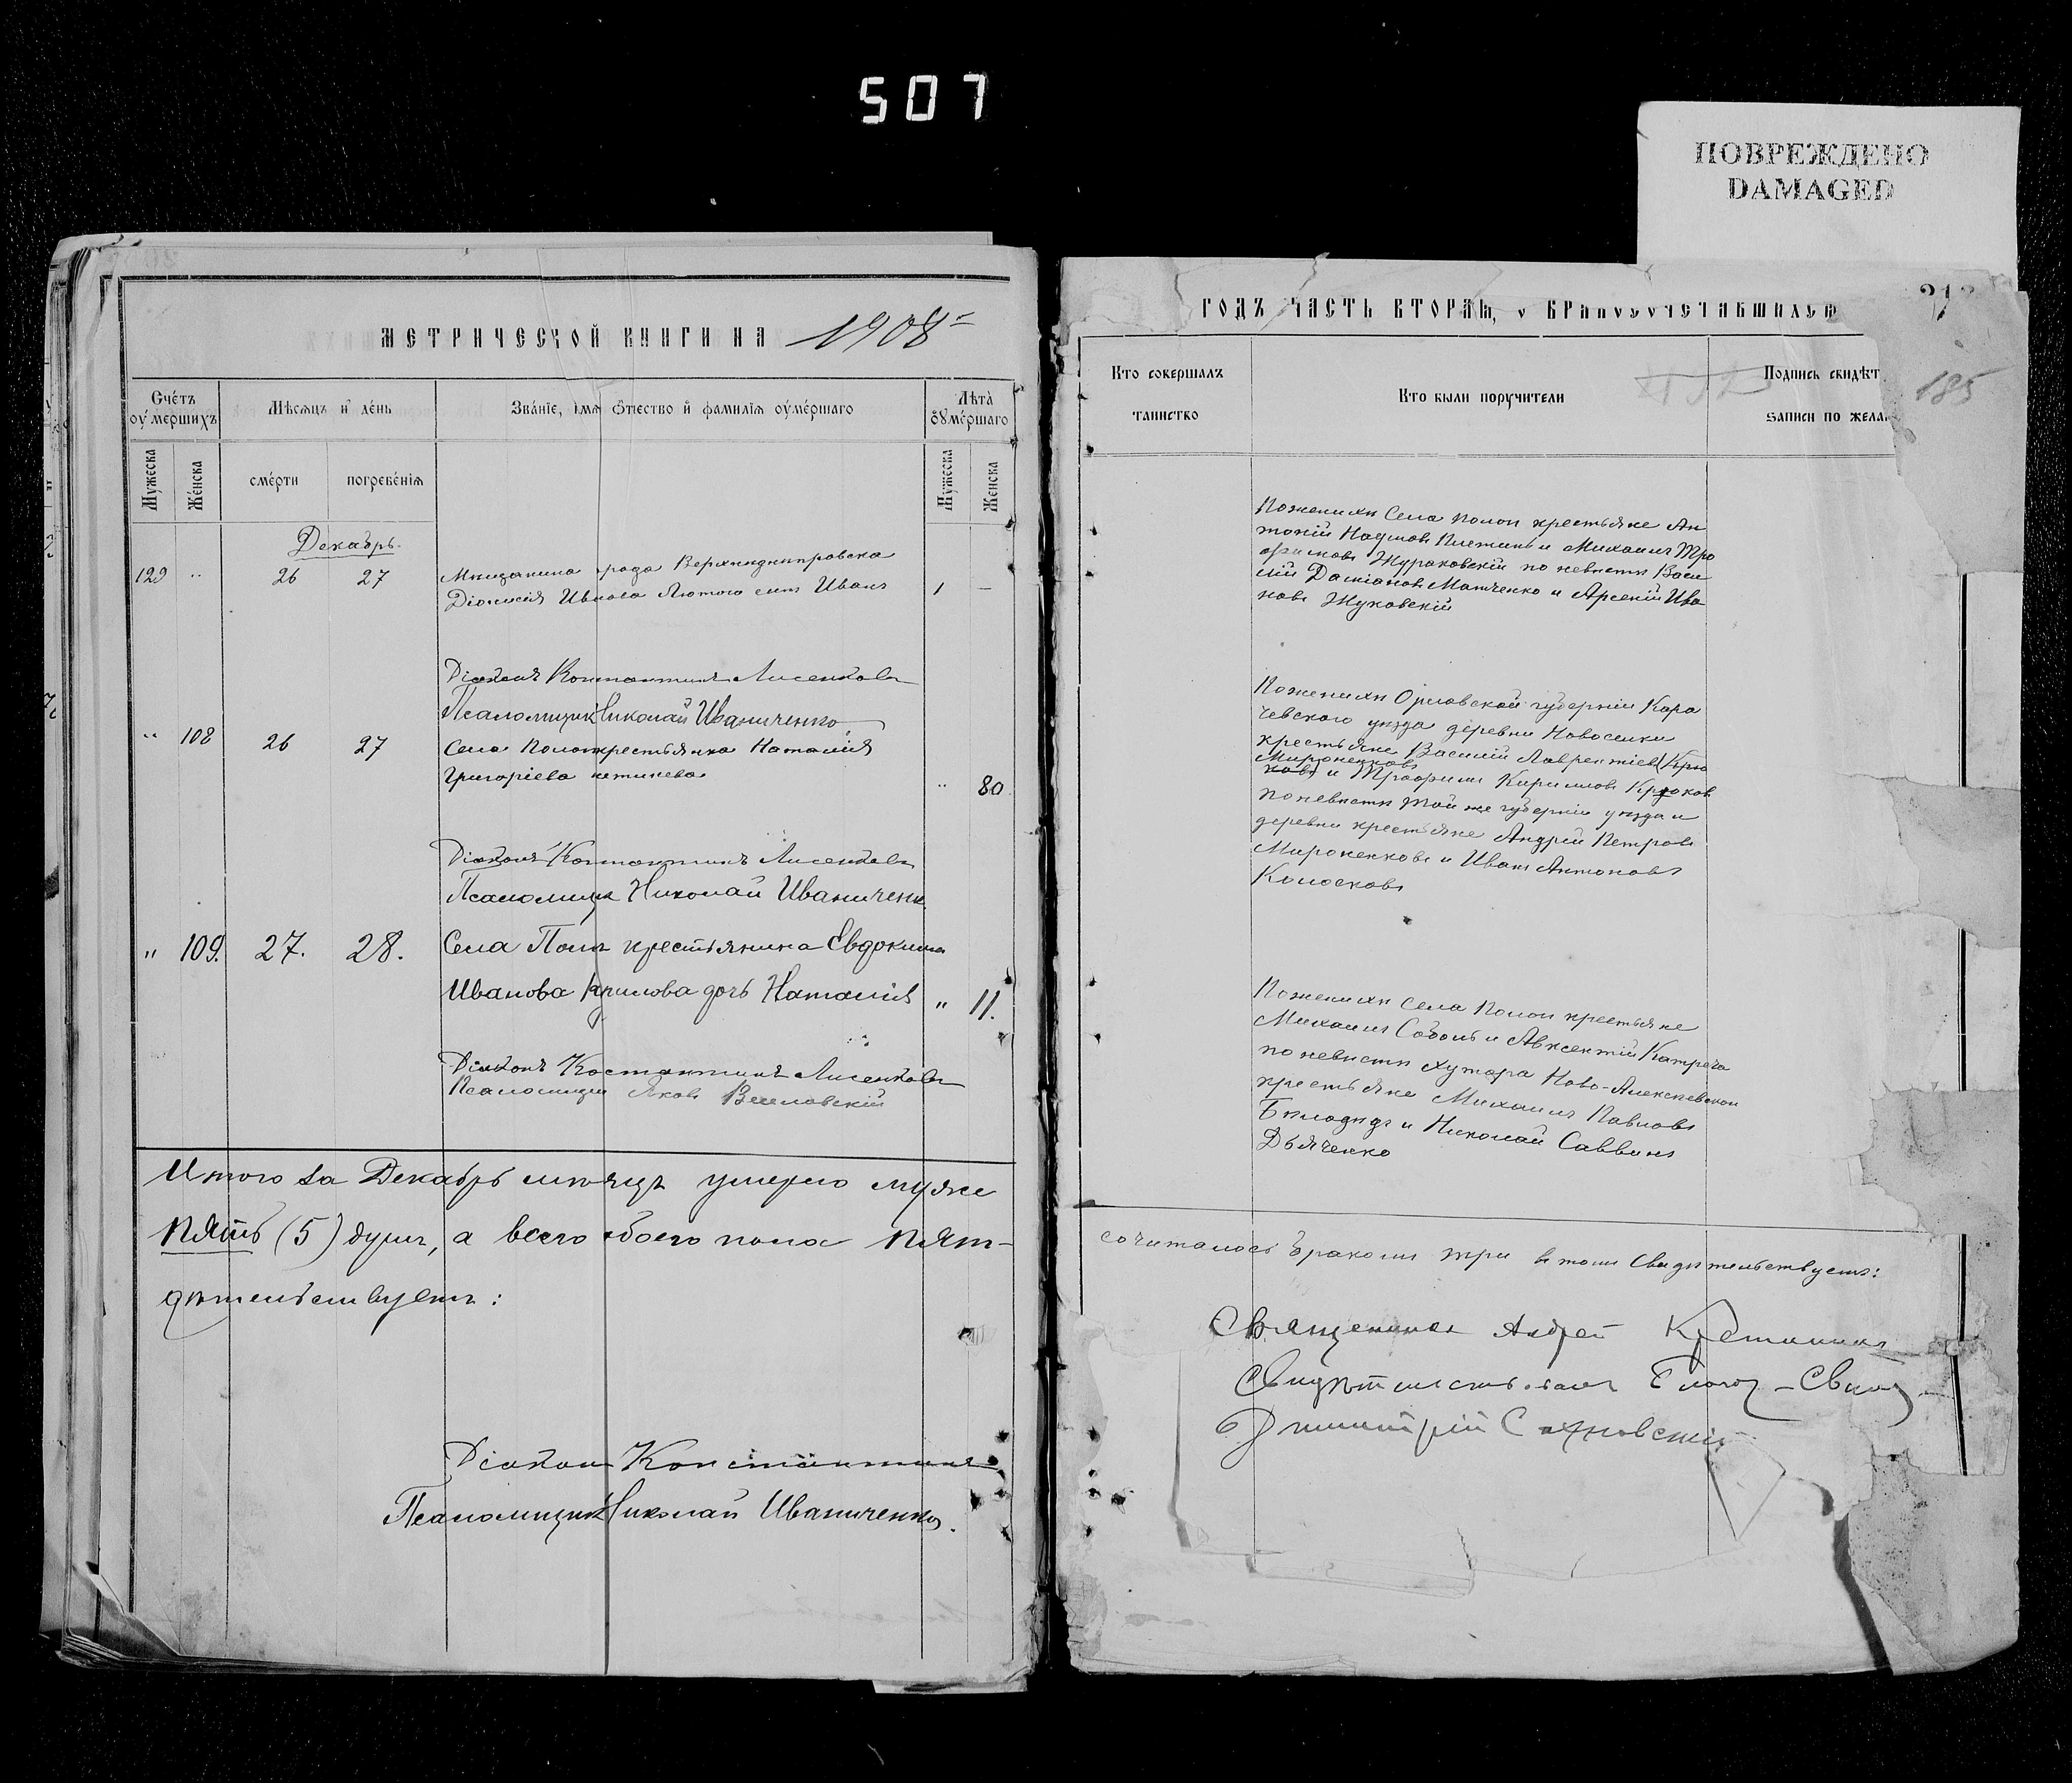 507
ПОВРЕЖДЕНО
DAMAGED
МЕТРИЧЕСКОЙ КНИГИ НА 1908
Счéтъ оумершихъ
Мѣсяцъ и дéнь
Звáнїе, имя ѻтчество и фамилїя оумéршаго
Лѣтà оумéршаго
Мужеска
Женска
смéрти
погребéнїя
Мужеска
Женска
Декабрь.
129 " 26 27 Мѣщанина града Верхнеднѣпровска
Діонисія Иванова Лютого сынъ Иванъ 1 —
Діаконъ Константинъ Лисенковъ
Псаломщикъ Николай Иваниченко
" 108 26 27 Села Пологъ крестьянка Наталія
Григоріева " 80
Діаконъ Константинъ Лисенковъ
Псаломщикъ Николай Иваниченк.
" 109. 27. 28. Села Пологъ крестьянина Евдокима
Иванова дочь Наталія " 11.
Діаконъ Костантинъ Лисенковъ
Псаломщикъ Яковъ
Итого за Декабрь мѣсяцъ умерло муже
Пять (5) душъ, а всего обоего пола пят-
дѣтельствуетъ:
Діаконъ Константинъ
Псаломщикъ Николай Иваниченко.
ГОДЪ ЧАСТЬ ВТОРАЯ, О БРАКОСОЧЕТАВШИХСЯ
185
Кто совершалъ таинство
Кто были поручители
Подпись свидѣт
записи по жела
По женихѣ Села Пологъ крестьяне Ан
тоній Наумовъ и Михаилъ Тро
фимовъ Жураковскій по невѣстѣ Васи
лій Даміановъ Матченко и Арсеній Ива
новъ Жуковскій
По женихѣ Орловской губерніи Кара
чевскаго уѣзда деревни Новоселки
крестьяне Василій Лаврентіевъ (Крю
Мироненковъ
ковъ) и Трофимъ Кирилловъ Крюковъ
по невѣстѣ той же губерніи уѣзда и
деревни крестьяне Андрей Петровъ
Мироненковъ и Иванъ Антоновъ
Колосковъ
По женихѣ села Пологъ крестьяне
Михаилъ Соболь и Авксентій Катреча
по невѣстѣ хутора Ново-Алексѣевскаго
крестьяне Михаилъ Павловъ
Бѣлодѣдъ и Николай Саввинъ
Дьяченко
сочиталось бракомъ три въ томъ Свидѣтельствуетъ:
Священникъ Андрей
Свидѣтельствовалъ Благоч. - Свящ
Димитрій Сахновскій